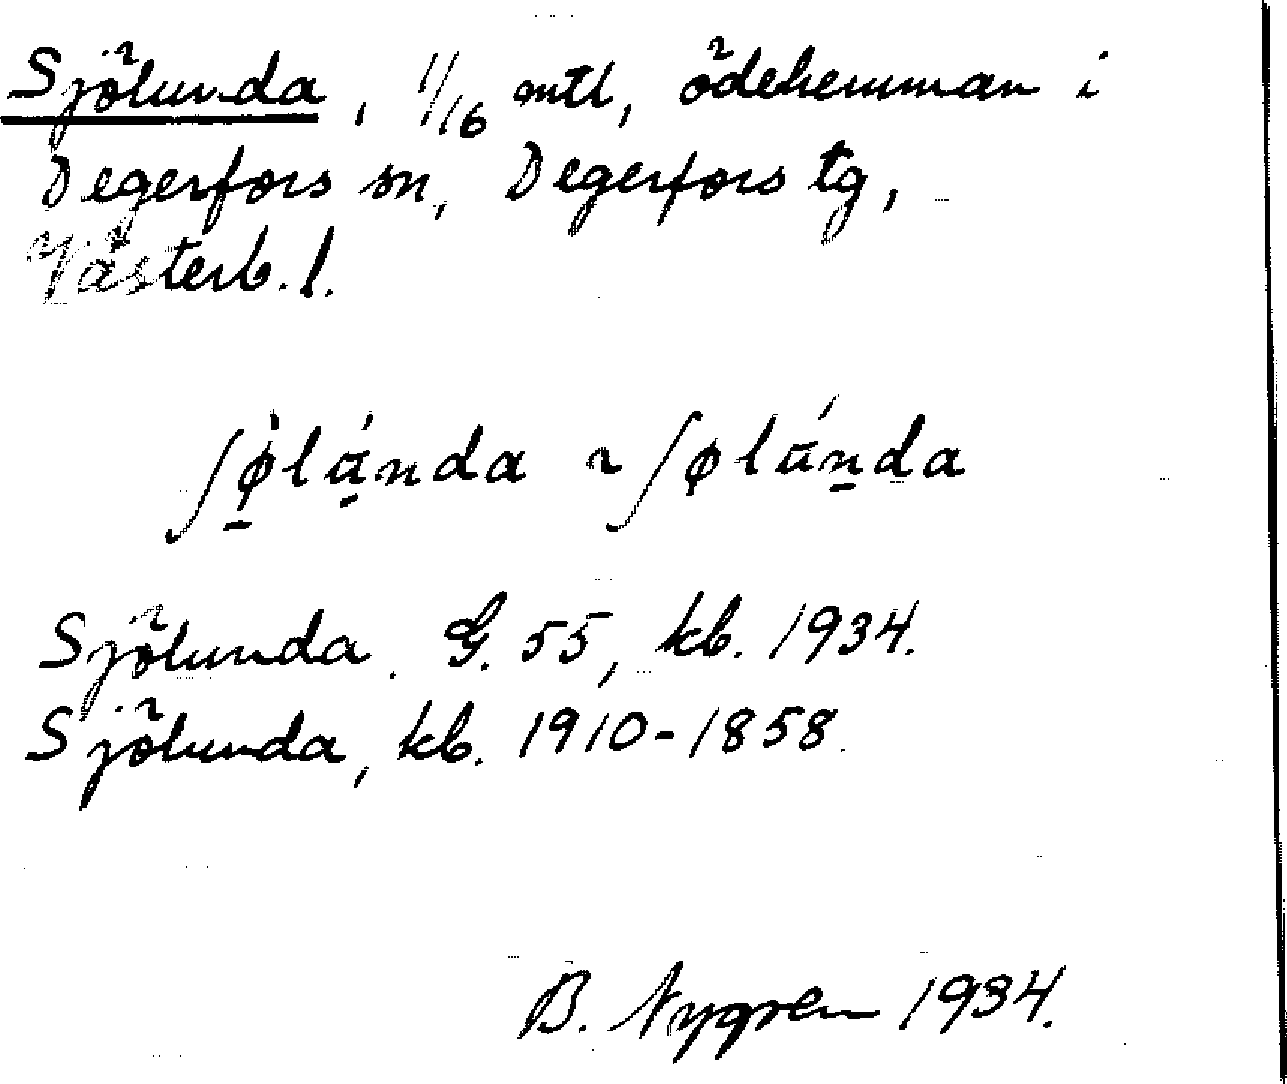 Sjölunda, 1/16 mtl, ödehemman i
Degerfors sn, Degerfors tg,
Västerb. l.
Sjölunda. G. 55, kb. 1934.
Sjölunda, kb. 1910-1858.
B. Nygren 1934.